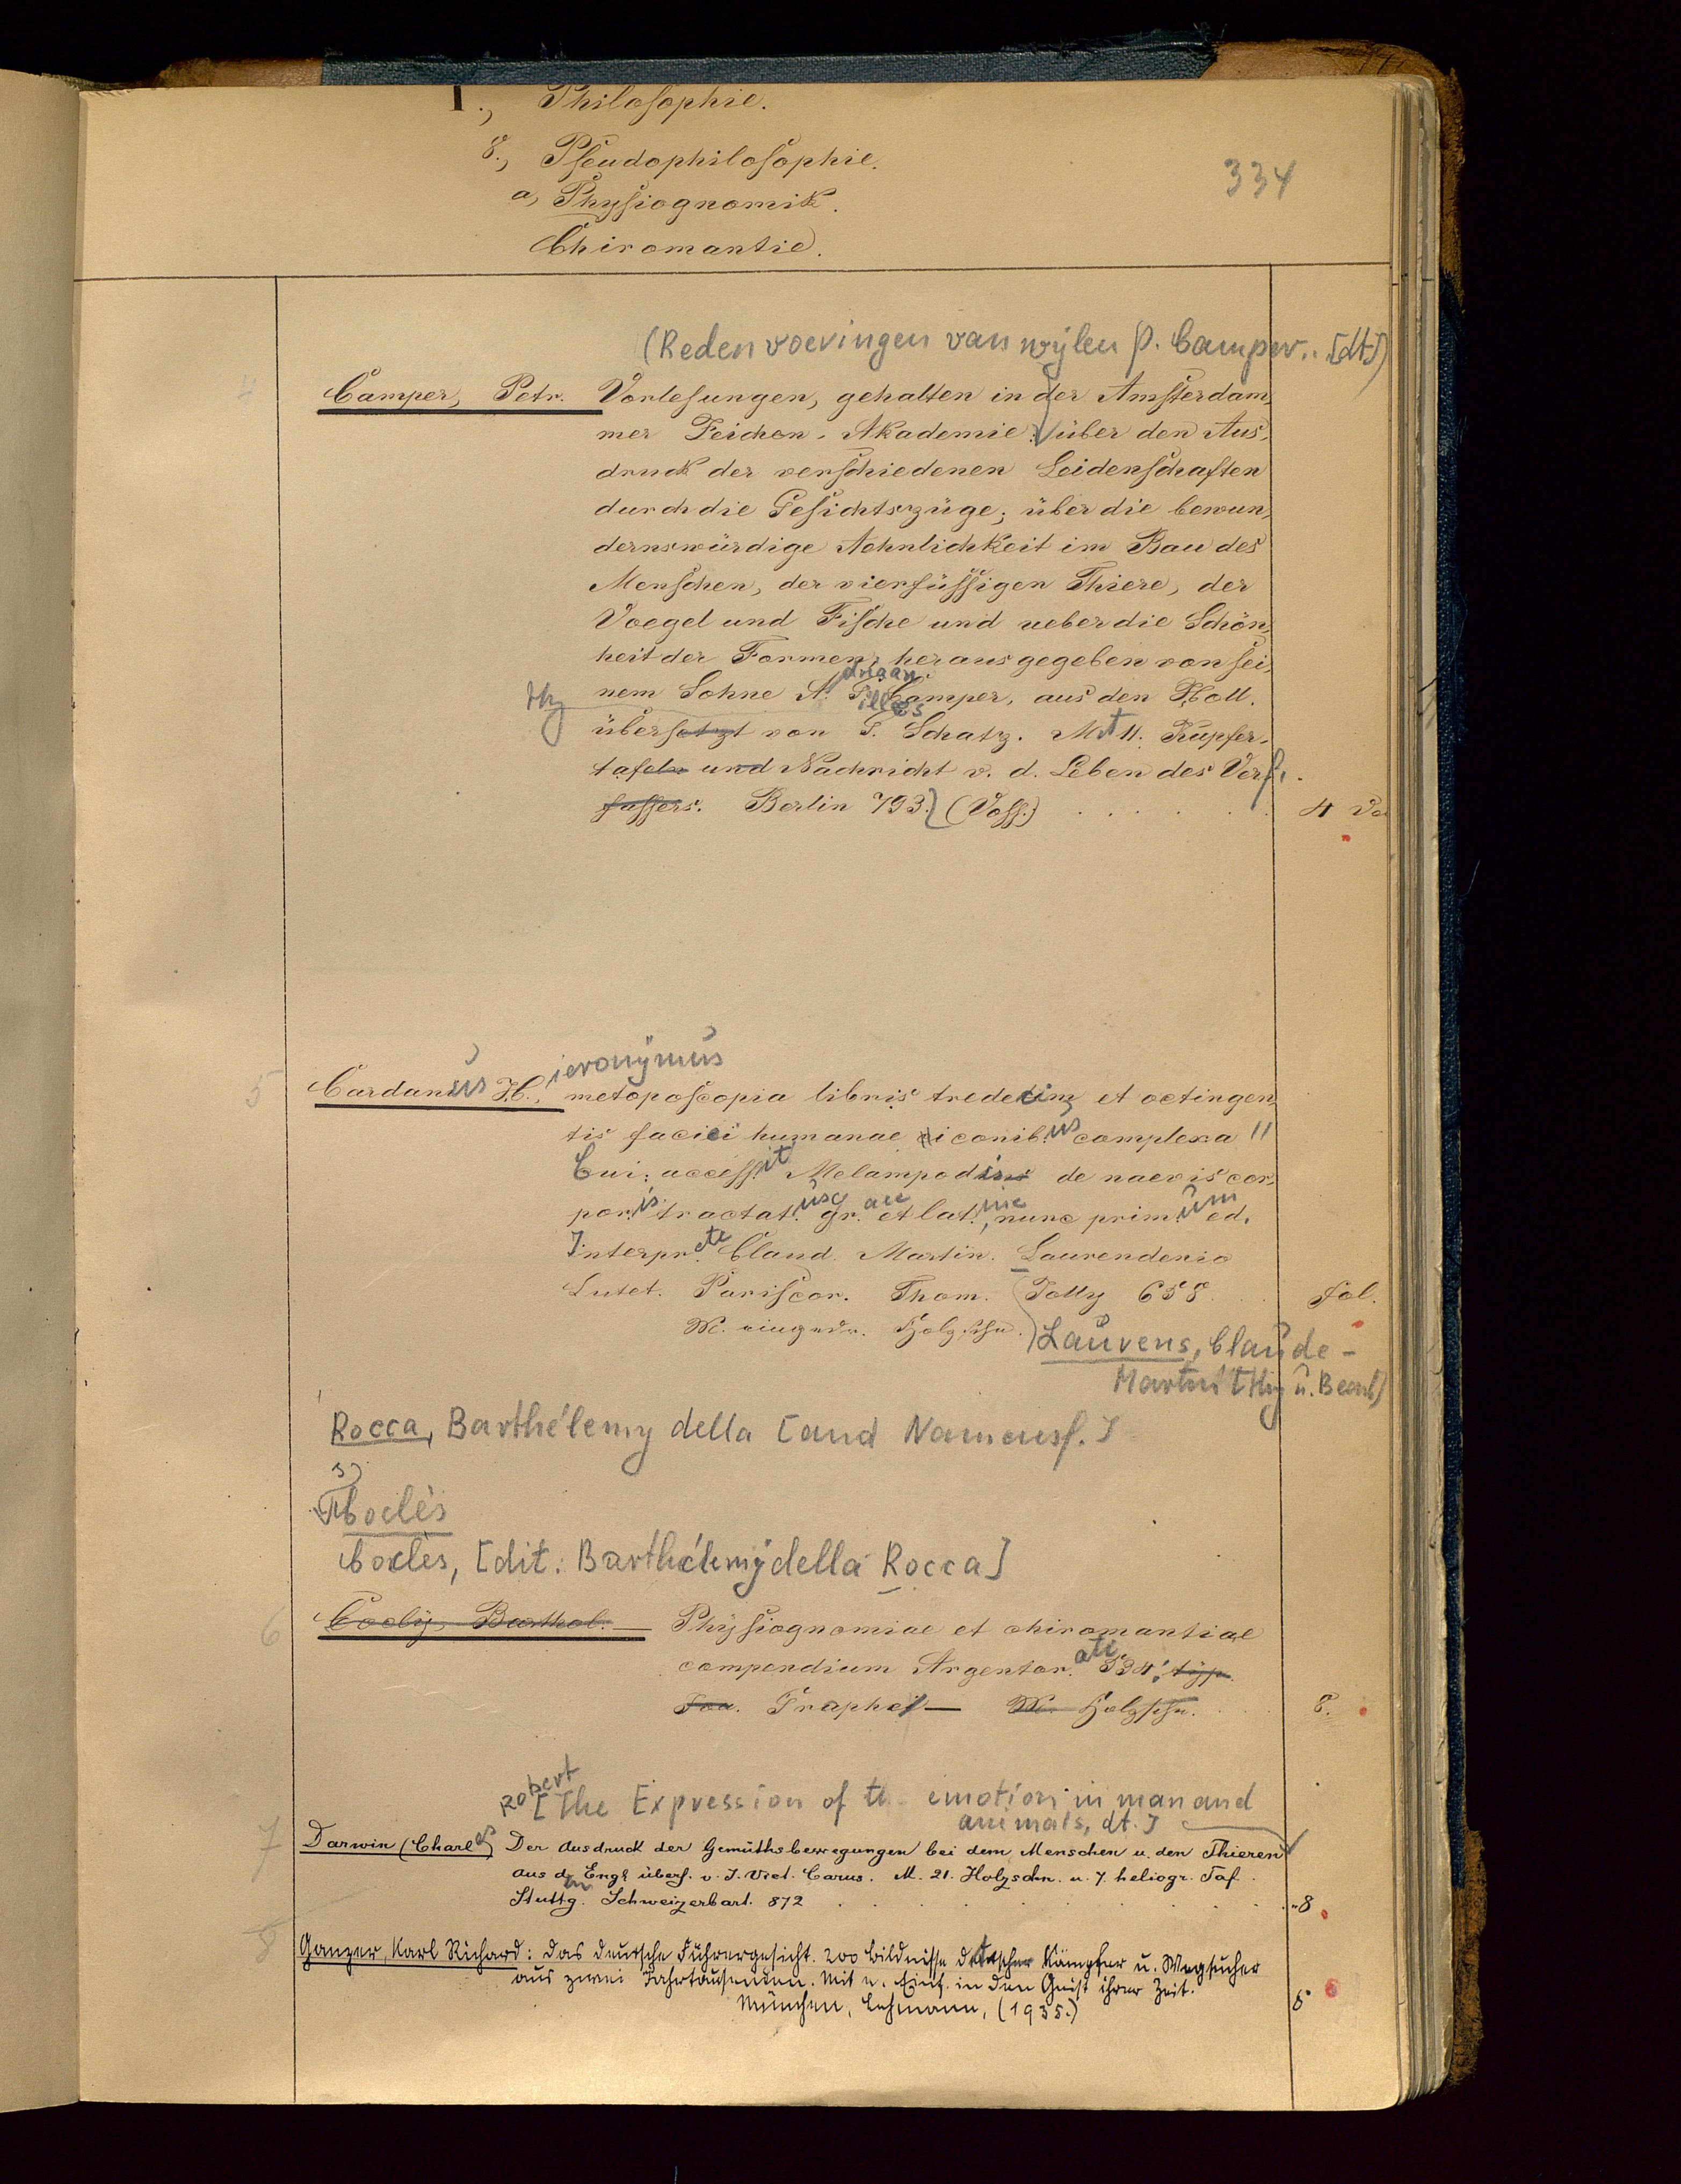 I., Philosophie.
8., Pseudophilosophie.
a, Physiognomik.
Chiromantie.
334
(Redenvoeringen van wijlen P. Camper.. [dt])
4
Camper, Petr. Vorlesungen, gehalten in der Amsterdam,
mer Zeichen-Akademie: über den Aus,
druck der verschiedenen Leidenschaften
durch die Gesichtszüge; über die bewun,
dernswürdige Aehnlichkeit im Bau des
Menschen, der vierfüssigen Thiere, der
Voegel und Fische und ueber die Schön,
heit der Formen; herausgegeben von sei,
driaan
nem Sohne A. G. Camper, aus den Holl.
illes
übersetzt von G. Schatz. Mit 11. Kupfer-
tafeln und Nachricht v. d. Leben des Verf.
fassers. Berlin 793. (Voss.)
4
ieronymus
5
Cardanus H., metoposcopia libris tredecim, et octingen,
tis faciei humanae iconibus complexa //
Cui: accessit Melampodis de naevis cor,
poris tractatus, gr.ace et lat.ine, nunc primum ed.
Interprete Claud. Martin. Laurenderio
Lutet. Pariscor. Thom. Jolly 658.
fol.
M. eingedr. Holzschn.
Laurens, Claude-
Martin [Hg u. Bearb]
Rocca, Barthélemy della [and Namensf.]
s)
Coclès
Coclès, [dit: Barthélemy della Rocca]
6
Coclij, Barthol. Physiognomiae et chiromantiae
compendium Argentorati 534. typ.
Joa. Graphei M. Holzschn.
8.
Robert
[The Expression of the emotion in man and
animals, dt.]
7
Darwin (Charles) Der Ausdruck der Gemüthsbewegungen bei dem Menschen u. den Thieren
aus den Engl. übers. v. J. Vict. Carus. M. 21. Holzschn. u. 7. heliogr. Taf.
Stuttg. Schweizerbart. 872
8
8
Ganzer, Karl Richard: Das deutsche Führergesicht. 200 Bildnisse deutscher Kämpfer u. Wegsucher
aus zwei Jahrtausenden. Mit e. Einf. in den Geist ihrer Zeit.
München, Lehmann, (1935.)
8